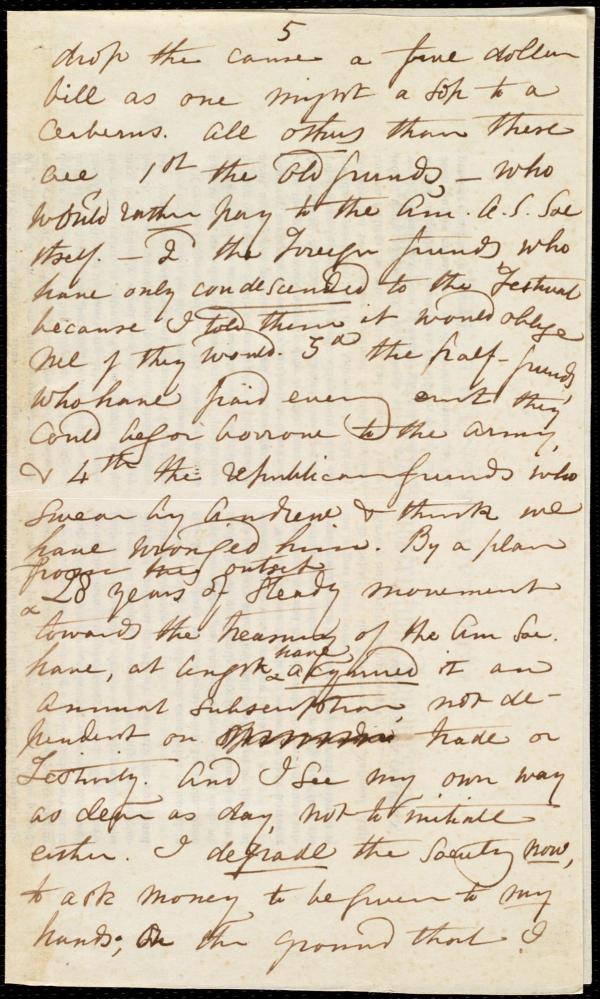 5
drop the cause a five dollar
bill as one might a sop to a
Cerberus. All others than these
are, 1st the Old friends, – who
would rather pay to the Am. A. S. Soc
itself. – 2d the Foreign friends, who
have only condescended to the Festival
because I told them it would oblige
me if they would. 3d the half-friends,
who have paid every cent they
could beg or borrow to the army,
& 4th the republican friends who
swear by Andrew & think we
have wronged him. By a plan
from the outset
& 28 years of steady movement
towards the treasury of the Am Soc.
have, at length, have & acquired it an
Annual Subscription, not de-
pendent on trade or
Festivity. And I see my own way
as clear as day, not to initiate
either. I degrade the Society now,
to ask money to be given to my
hands; On the ground that I